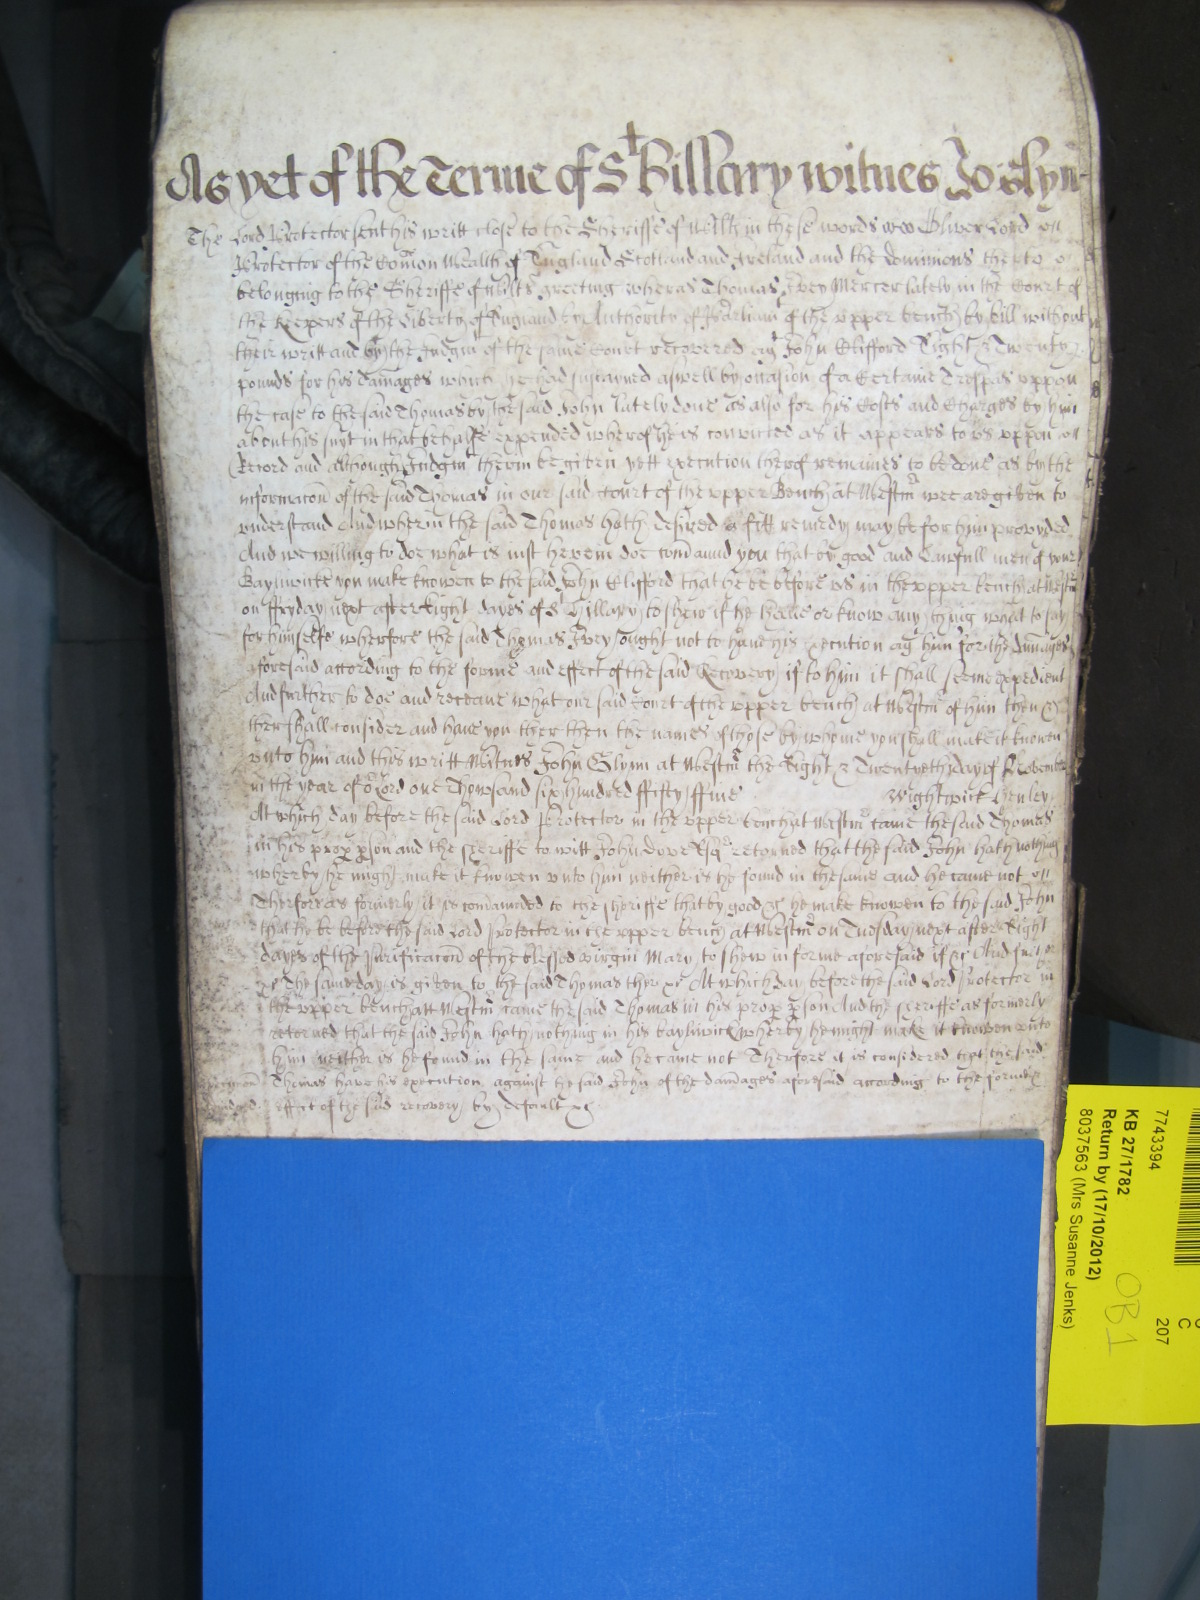 As yet of the Terme of St Hillary witnes Jo Glyn
The Lord Protector sent his writt close to the Sheriffe of Wiltes in these words Oliver Lord
Protector of the Comon Wealth of England Scotland and Ireland and the dominions therto
belonging to the Sheriffe of Wilts greeting wheras Thomas Ivey Mercer lately in the Court of
the Keepers of the Liberty of England by Authority of Parliamt of the upper bench by bill without
their writt and by the Judgmt of the same Court recovered agt John Clifford Eight & Twenty
pounds for his damages which he had sustayned aswell by occasion of a Certaine Trespas uppon
the case to the said Thomas by the said John lately done as also for his Costs and Charges by him
about his suyt in that behalfe expended wherof he is convicted as it appears to us uppon
Record and although Judgmt therin be given yett execution therof remaines to be done as by the
informacon of the said Thomas in our said Court of the upper Bench at Westmr wee are given to
understand And wherin the said Thomas hath desired a fitt remedy may be for him provyded
And we willing to doe what is just herein doe comaund you that by good and Lawfull men of your
Baywicke you make knowen to the said John Clifford that he be before us in the upper bench at Westmr
on ffryday next after Eight dayes of St Hillary to shew if he have or know any thing what to say
for himselfe wherfore the said Thomas Ivey ought not to have his execution agt him for the damages
aforesaid according to the forme and effect of the said Recovery if to him it shall seeme expedient
And further to doe and receave what our said Court of the upper bench at Westmr of him then &
ther shall consider and have you ther then the names of those by whome you shall make it knowen
unto him and this writt Witnes John Glynn at Westmr the Eight & Twentyeth day of November
in the year of or Lord one Thowsand six hundred ffifty ffive Wightwick Henley
At which day before the said Lord Protector in the upper bench at Westmr came the said Thomas
in his prop pson and the sheriffe to witt John Dove Esqr retorned that the said John hath nothing
wherby he might make it knowen unto him neither is he found in the same and he came not
Therfore as formerly it is comanded to the sheriffe that by good &c he make knowen to the said John
that he be before the said Lord Protector in the upper bench at Westmr on Tuesday next after Eight
dayes of the Purificacon of the blessed virgin Mary to shew in forme aforesaid if &c And further
&c The same day is given to the said Thomas ther &c At which day before the said Lord Protector in
the upper bench att Westmr came the said Thomas in his prop pson And the sheriffe as formerly
retorned that the said John hath nothing in his bayliwick wherby he might make it knowen unto
him neither is he found in the same and he came not Therfore it is considered that the said
Thomas have his execution against the said John of the damages aforesaid according to the forme &
effect of the said recovery by default &c
7743394
KB 27/1782
Return by (17/10/2012)
8037563 (Mrs Susanne Jenks)
C
207
OB1